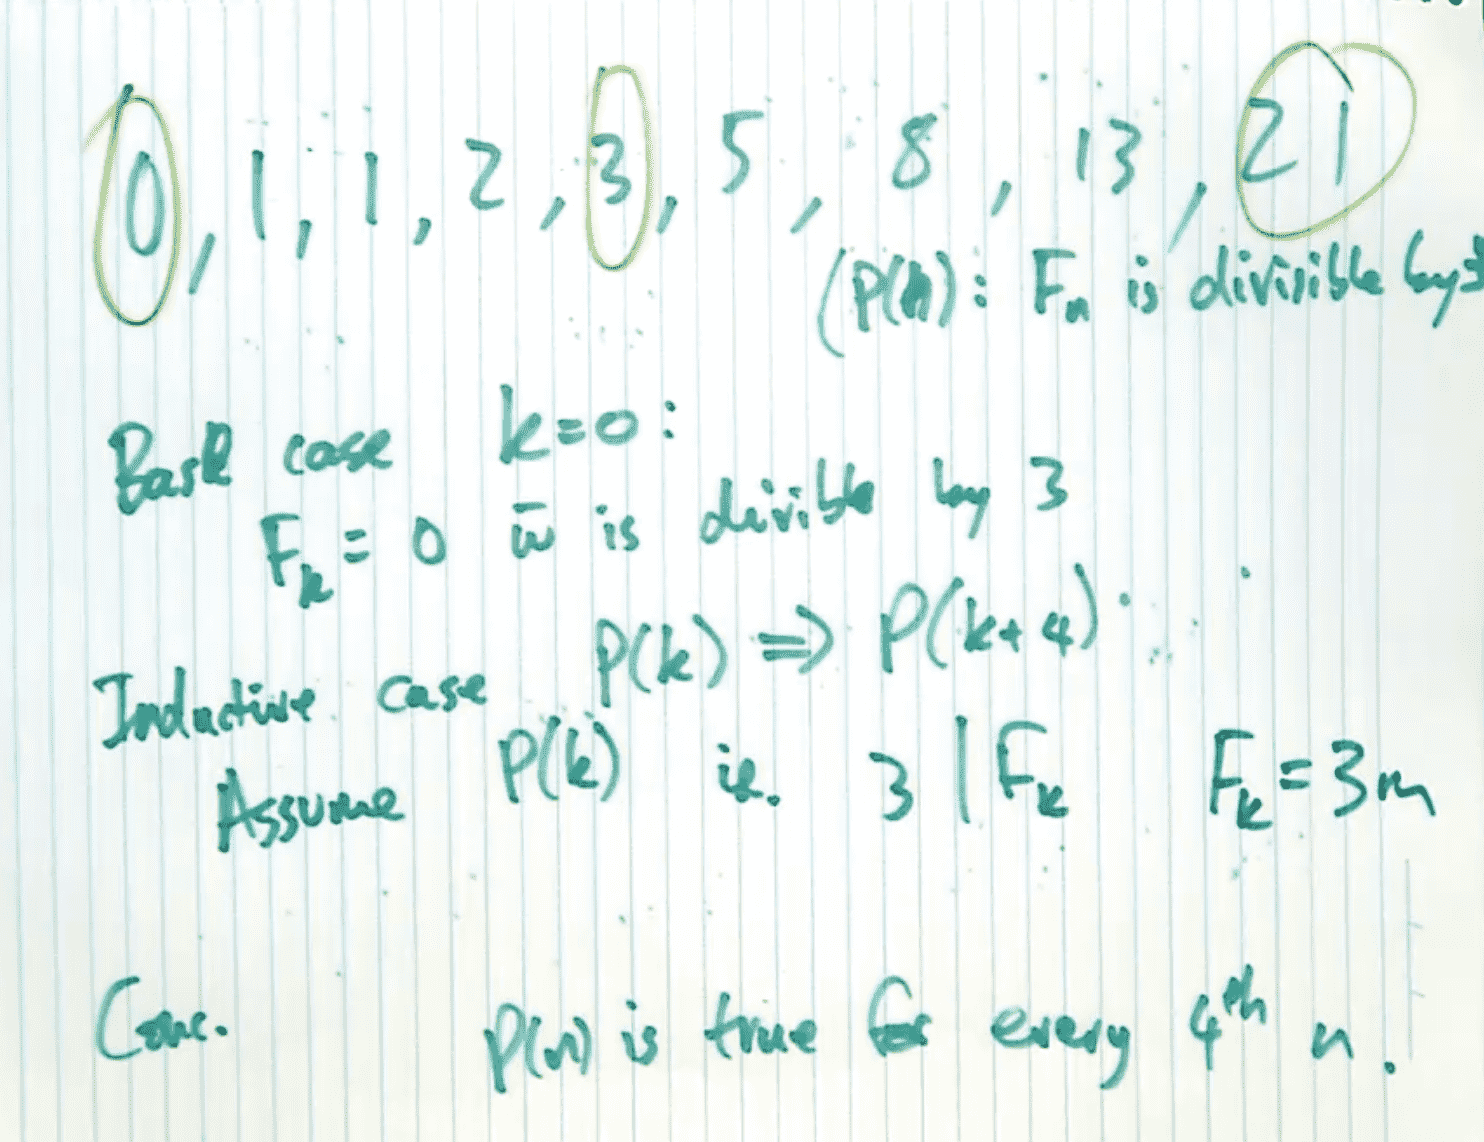 0, 1, 1, 2, 3, 5, 8, 13, 21
(P(n): Fn is divisible by 3
Base case k=0:
Fk = 0 is divible by 3
Inductive case P(k) ⇒ P(k+4)
Assume P(k) ie. 3 | Fk Fk = 3m
Conc. P(n) is true for every 4th n.